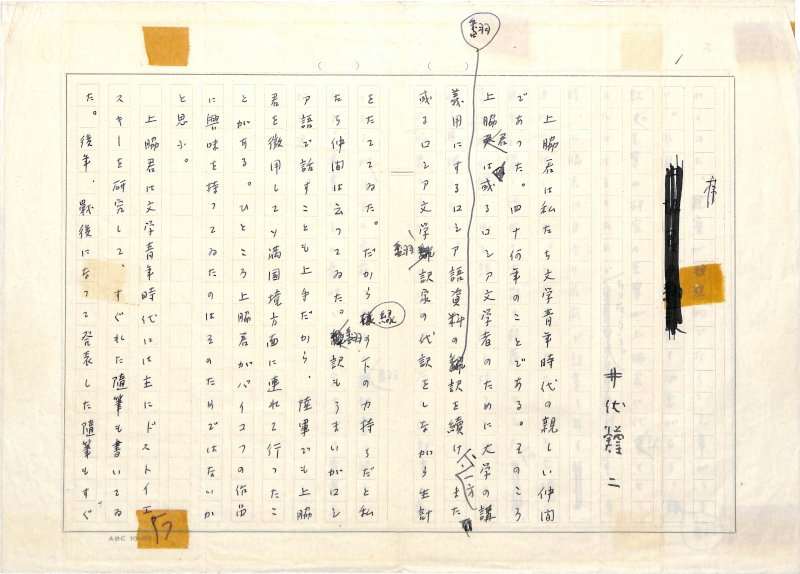 序
井伏鱒二
上脇君は私たち文学青年時代の親しい仲間
であつた。四十何年のことである。そのころ
上脇君は或るロシア文学者のために大学の講
義用にするロシア語資料の翻訳を続け、一方
或るロシア文学翻訳家の代訳をしながら生計
をたててゐた。だから縁の下の力持ちだと私
たち仲間は云つてゐた。翻訳もうまいがロシ
ア語で話すことも上手だから、陸軍でも上脇
君を徴用してソ満国境方面に連れて行つたこ
とがある。ひところ上脇君がバイコフの作品
に興味を持つてゐたのはそのためではないか
と思ふ。
上脇君は文学青年時代には主にドストイエ
スキーを研究して、すぐれた随筆も書いてゐ
た。後年、戦後になつて発表した随筆もすぐ
翻
1
57
ABC